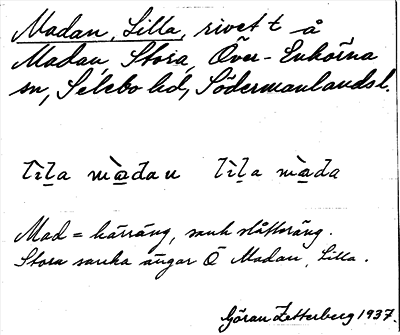 Madan, Lilla, rivet t å
Madan, Stora, Över-Enhörna
sn, Selebo hd, Södermanlandsl.
lìḷa màdan lìḷa màda
Mad = kärräng, sank slåtteräng.
Stora sanka ängar Ö Madan, Lilla.
Göran Zetterberg 1937.